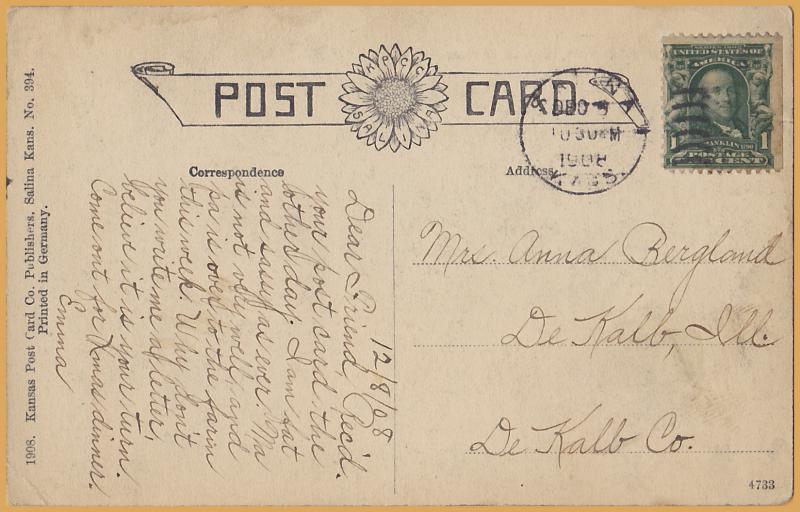 POST CARD
K P C C
SALINA
SALINA
DEC
10 30 AM
1908
KANS.
SERIES 1902
UNITED STATES OF
AMERICA
FRANKLIN
1 POSTAGE 1
ONE CENT
Correspondence
Address
12/8/08
Dear Friend Rec'd.
your post card the
other day. I am fat
and sassy as ever. Ma
is not very well and
pa is over to the farm
this week. Why don't
you write me a letter,
believe it is your turn.
Come out for Xmas dinner.
Emma
Mrs. Anna Bergland
De Kalb, Ill.
De Kalb Co.
1908. Kansas Post Card Co. Publishers, Salina Kans. No. 394.
Printed in Germany.
4733